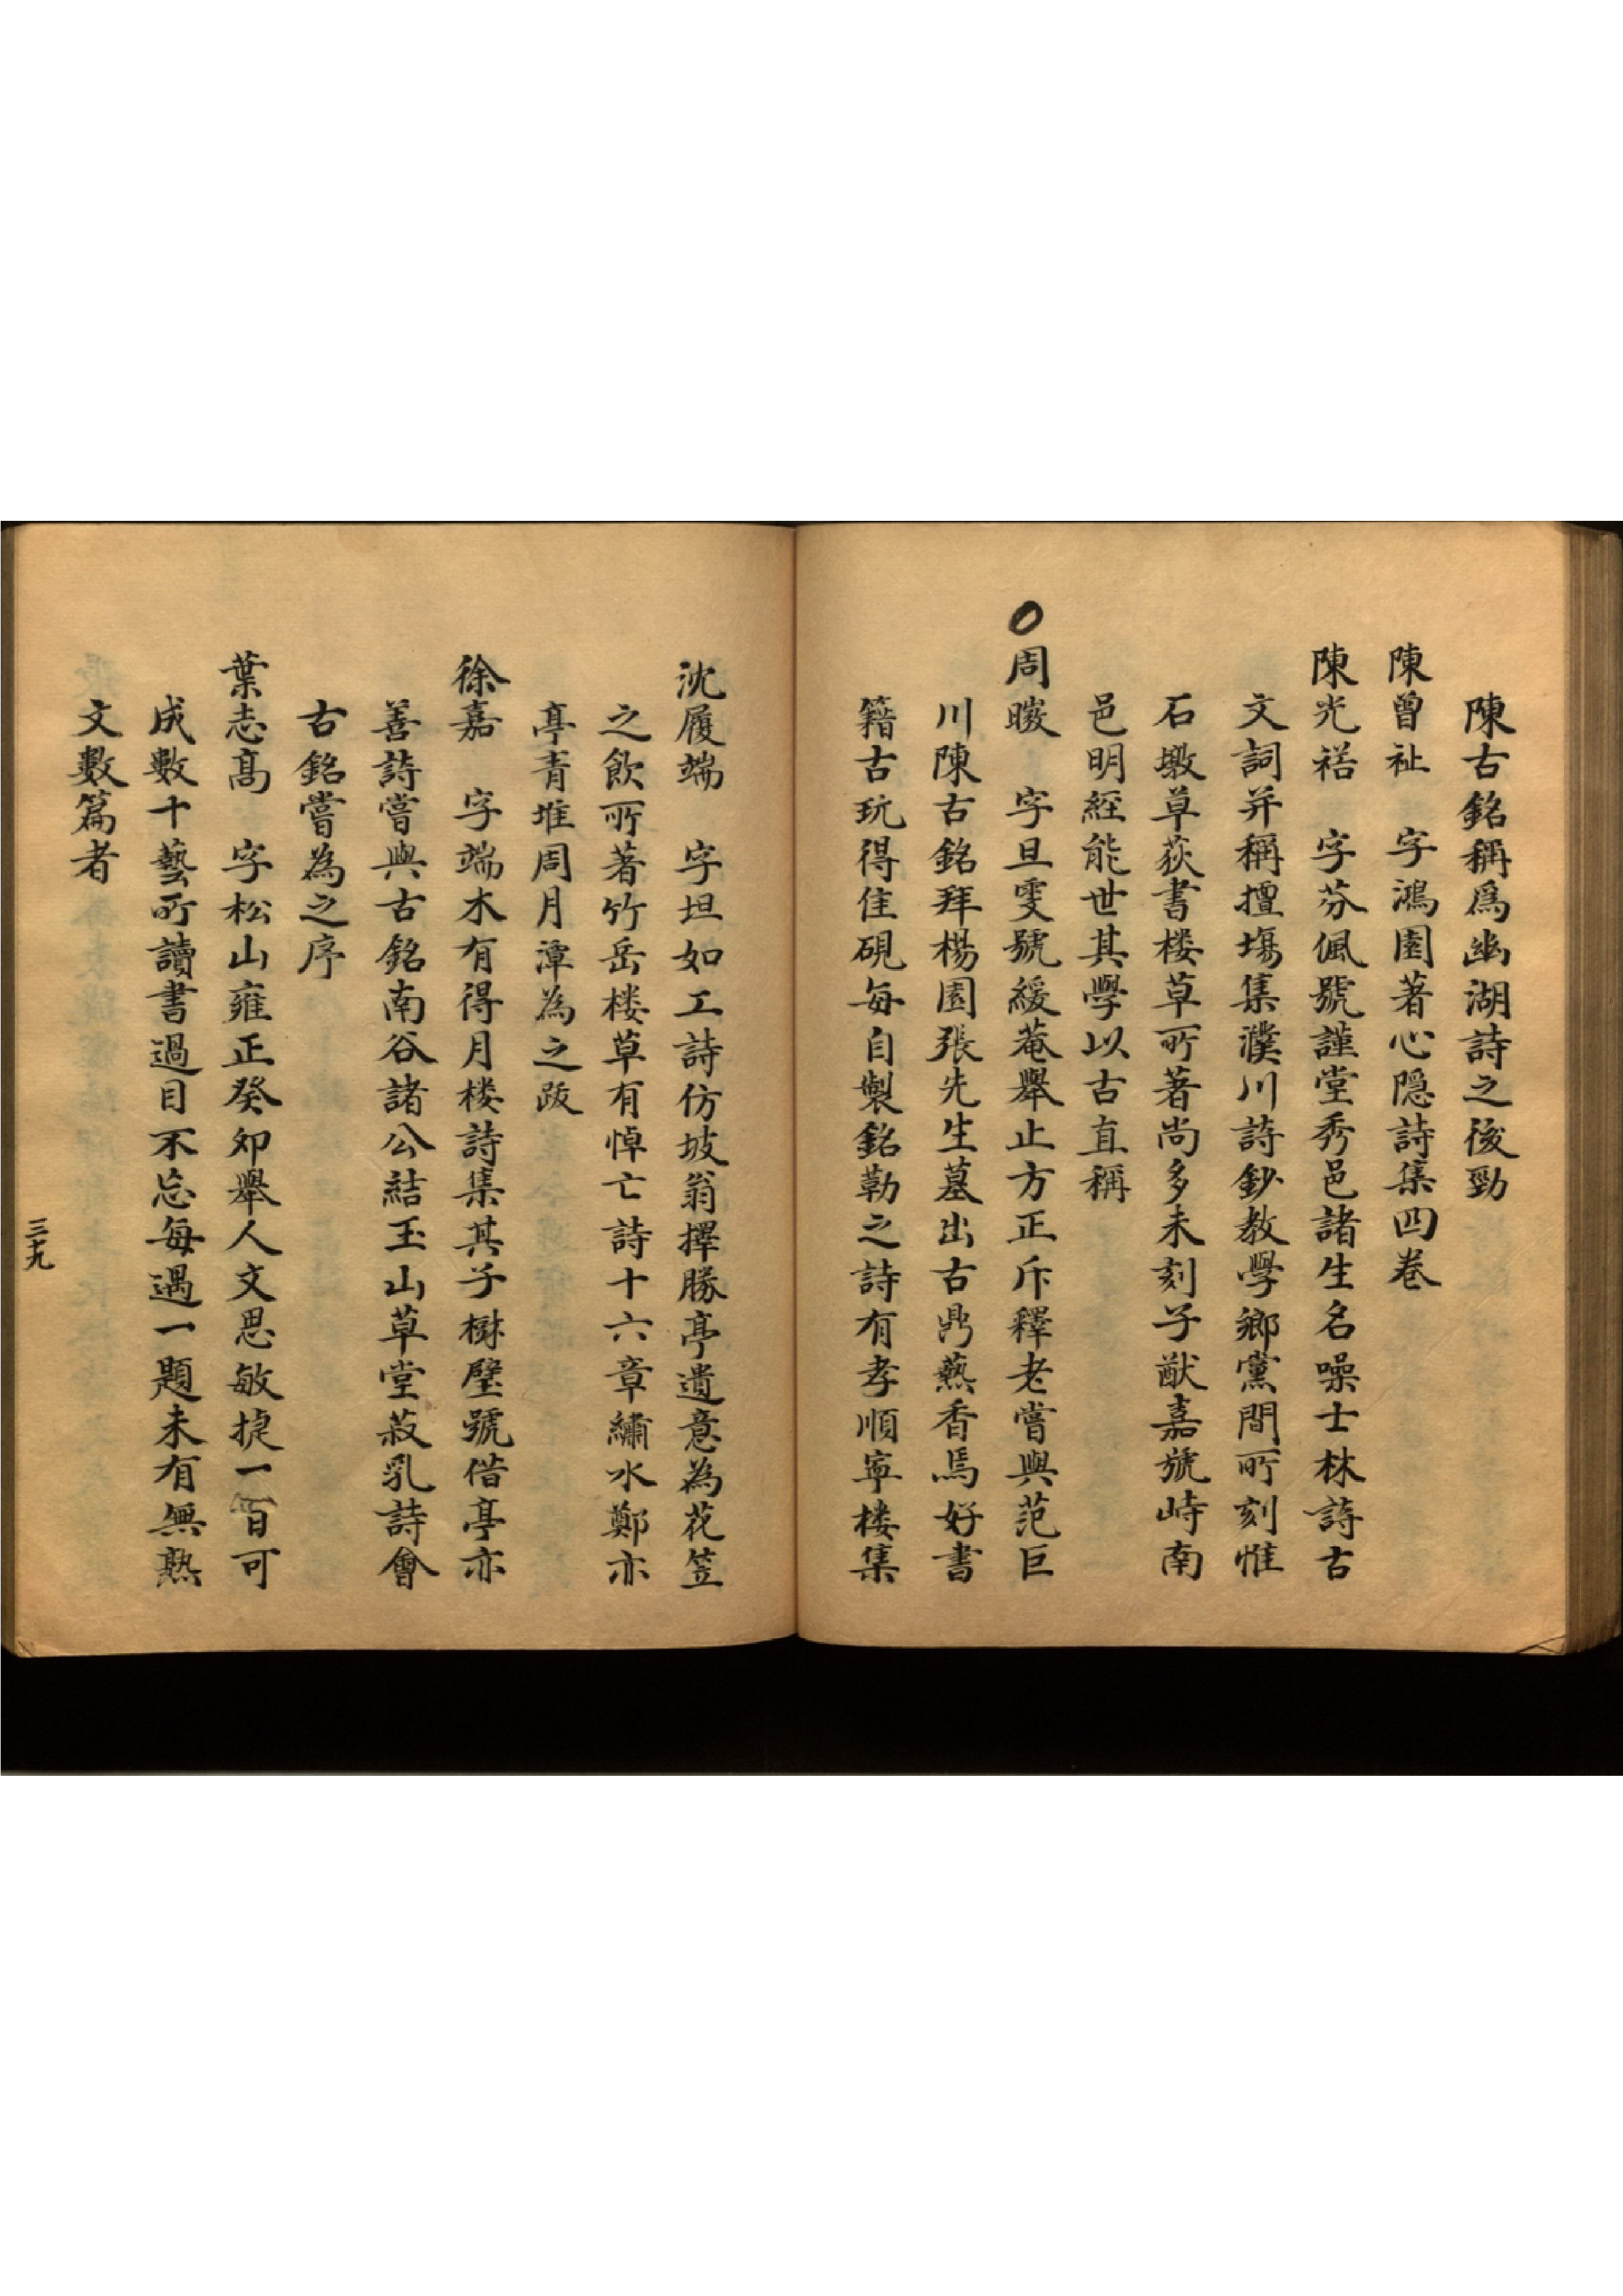 陳古銘稱爲幽湖詩之後勁
陳曾祉　字鴻園著心隠詩集四卷
陳光禧　字芬佩號謹堂秀邑諸生名噪士林詩古
文詞并稱擅塲集濮川詩鈔教學鄉黨間所刻惟
石墩草荻書楼草所著尚多未刻子猷嘉號峙南
邑明經能世其學以古直稱
周曔　字旦雯號緩菴舉止方正斥釋老嘗與范巨
川陳古銘拜楊園張先生墓出古鼎爇香焉好書
籍古玩得佳硯每自製銘勒之詩有孝順寧楼集
沈履端　字坦如工詩仿坡翁擇勝亭遺意為花笠
之飲所著竹岳楼草有悼亡詩十六章繡水鄭亦
亭青堆周月潭為之跋
徐嘉　字端木有得月楼詩集其子樹璧號偕亭亦
善詩嘗與古銘南谷諸公結玉山草堂菽乳詩會
古銘嘗為之序
葉志髙　字松山雍正癸夘舉人文思敏捷一百可
成數十藝所讀書過目不忘每遇一題未有無熟
文數篇者
三十九